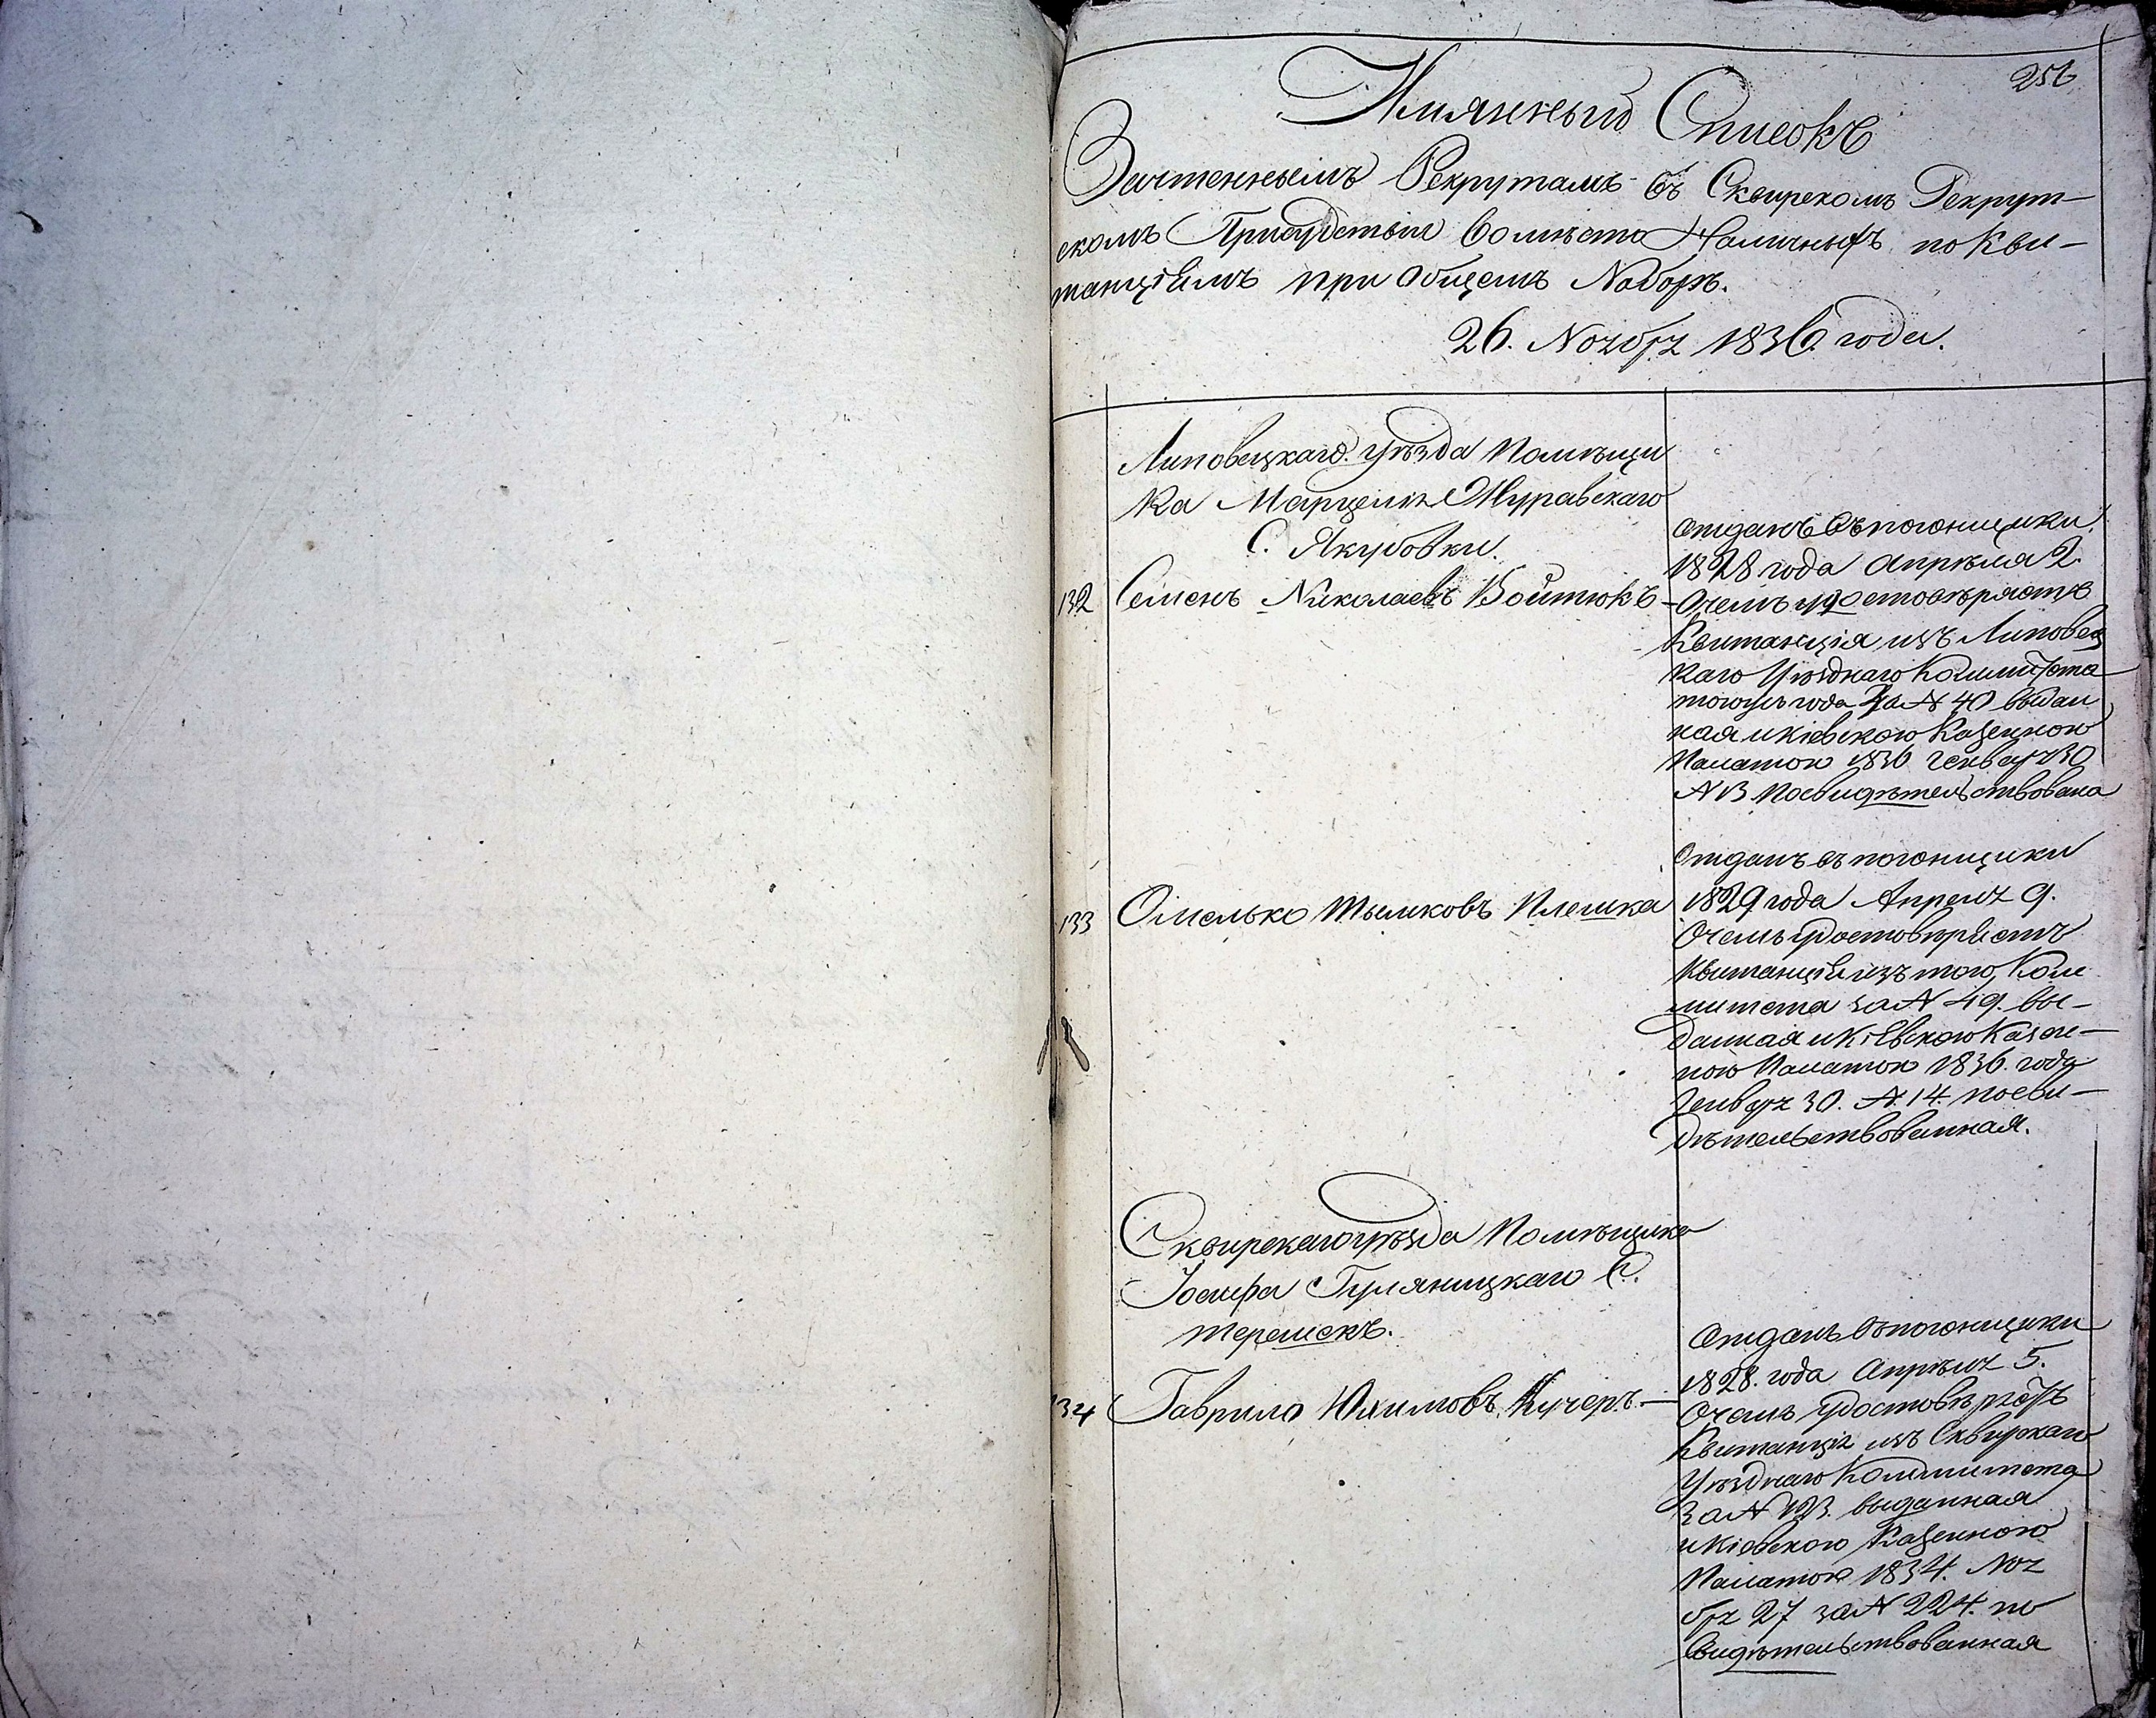 256
Имянный Списокъ
Зачтеннымъ Рекрутамъ въ Сквирскомъ Рекрут-
скомъ Присудствіи вомѣсто Наличныхъ по Кви-
танціямъ при общемъ Наборѣ.
26. Ноября 1836 года.
Липовецкаго уѣзда Помѣщи
ка Марцелія Журавскаго
С. Якубовки.
132 Семенъ Николаевъ Войтюкъ -
отданъ въ погонщики
1828 года Апрѣля 2.
Очемъ удостовѣряетъ
Квитанція изъ Липовец
каго Уѣзднаго Коммитета
тогожъ года за № 40 выдан
ная и Кіевскою Казенною
Палатою 1836 Генваря 30
№ 13 Посвидѣтельствована
133 Омелько Тымковъ Плешка
Отданъ въ погонщики
1829 года Апреля 9.
Очемъ удостовѣряетъ
Квитанція изъ того Ком
митета за № 49. вы-
данная и Кіевскою Казен-
ною Палатою 1836. году
Генваря 30. № 14. посви-
дѣтельствованная.
Сквирскаго уѣзда Помѣщика
Іосифа Гуляницкаго С.
Терешекъ.
134 Гаврило Юхимовъ Кучеръ. -
Отданъ въ погонщики
1828. года Апрѣля 5.
Очемъ удостовѣряетъ
Квитанція изъ Сквирскаго
Уѣзднаго Коммитета
за № 123. выданная
и Кіевскою Казенною
Палатою 1834. Ноя
бря 27 за № 224. по
свидѣтельствованная